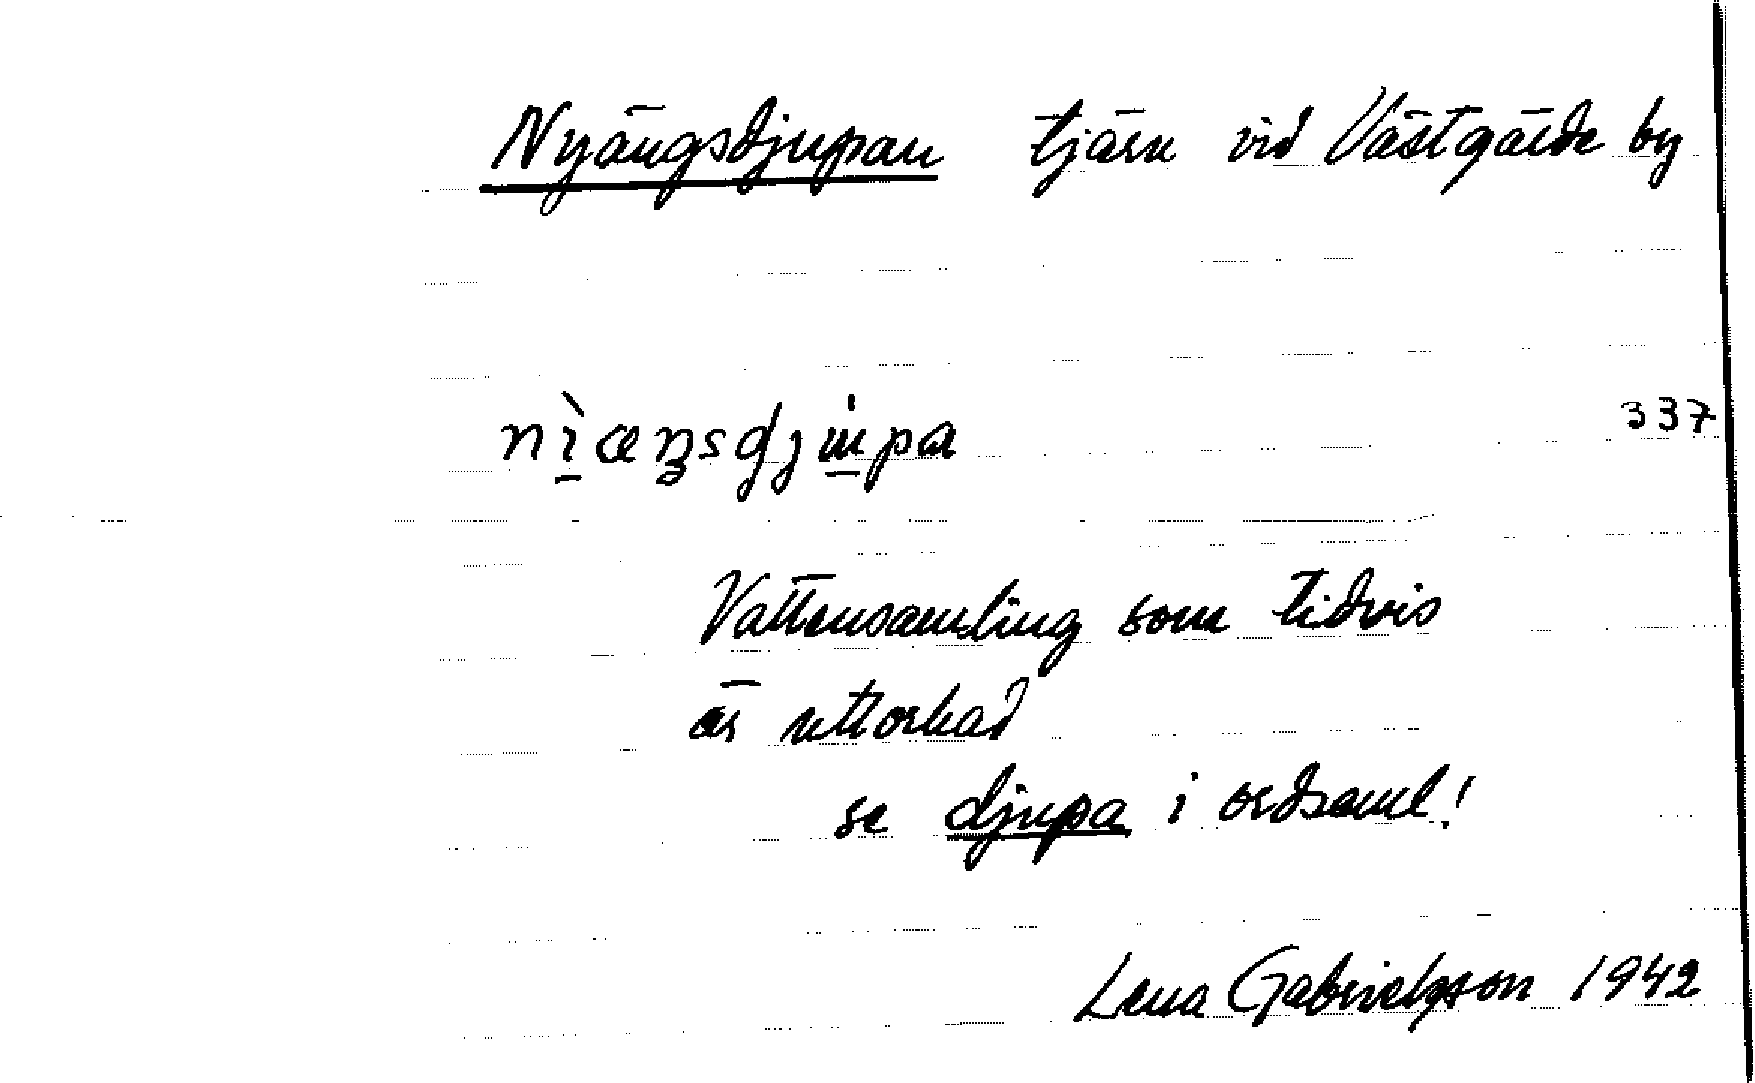 Nyängsdjupan tjärn vid Västgärde by
337
Vattensamling som tidvis
är uttorkad
se djupa i ordsaml!
Lena Gabrielsson 1942